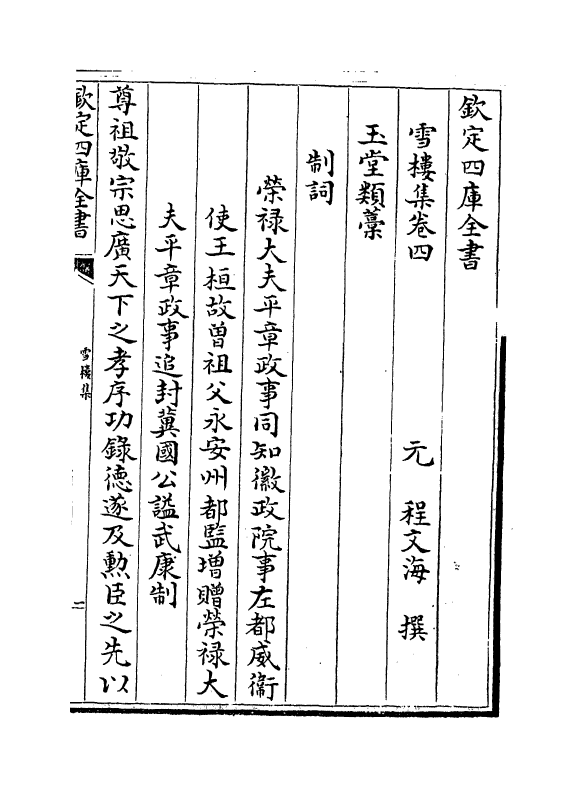 欽定四庫全書
雪樓集卷四
元 程文海 撰
玉堂類藁
制詞
榮禄大夫平章政事同知徽政院事左都威衞
使王桓故曾祖父永安州都監増贈榮禄大
夫平章政事追封冀國公謚武康制
尊祖敬宗思廣天下之孝序功錄德遂及勲臣之先以
欽定四庫全書
雪樓集